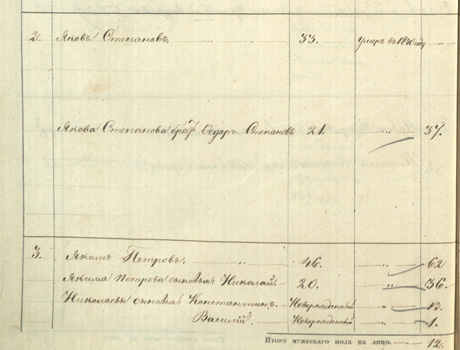 2. Яковъ Степановъ 33. умеръ въ 1840 году
Якова Степанова братъ Ѳедоръ Степановъ 21. " 37.
3. Якимъ Петровъ. 46. " 62
Якима Петрова сыновья Николай. 20. " 36.
Николаевы сыновья Константинъ. Новорожденный " 13.
Василій. Новорожденный " 1.
Итого мужескаго пола на лицо. 12.